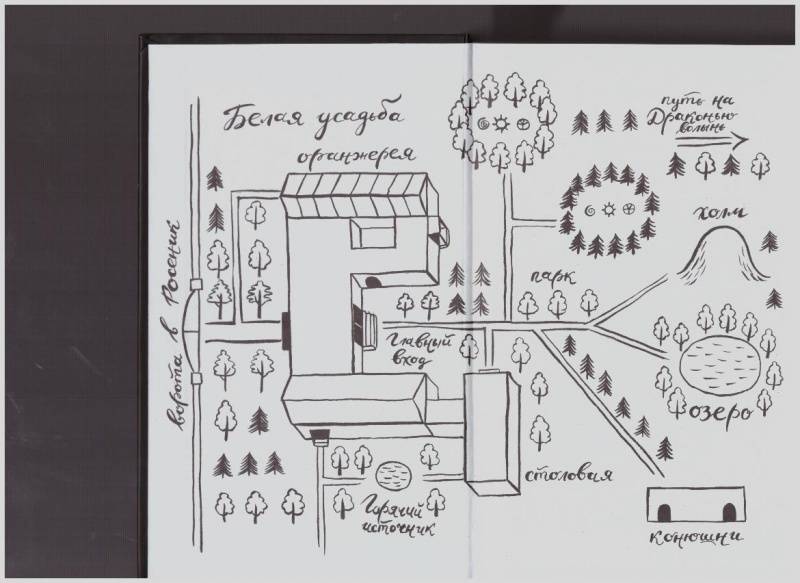 Белая усадьба
оранжерея
путь на
Драконью
волынь
холм
ворота в Росеник
парк
Главный
вход
озеро
столовая
Горячий
источник
конюшни